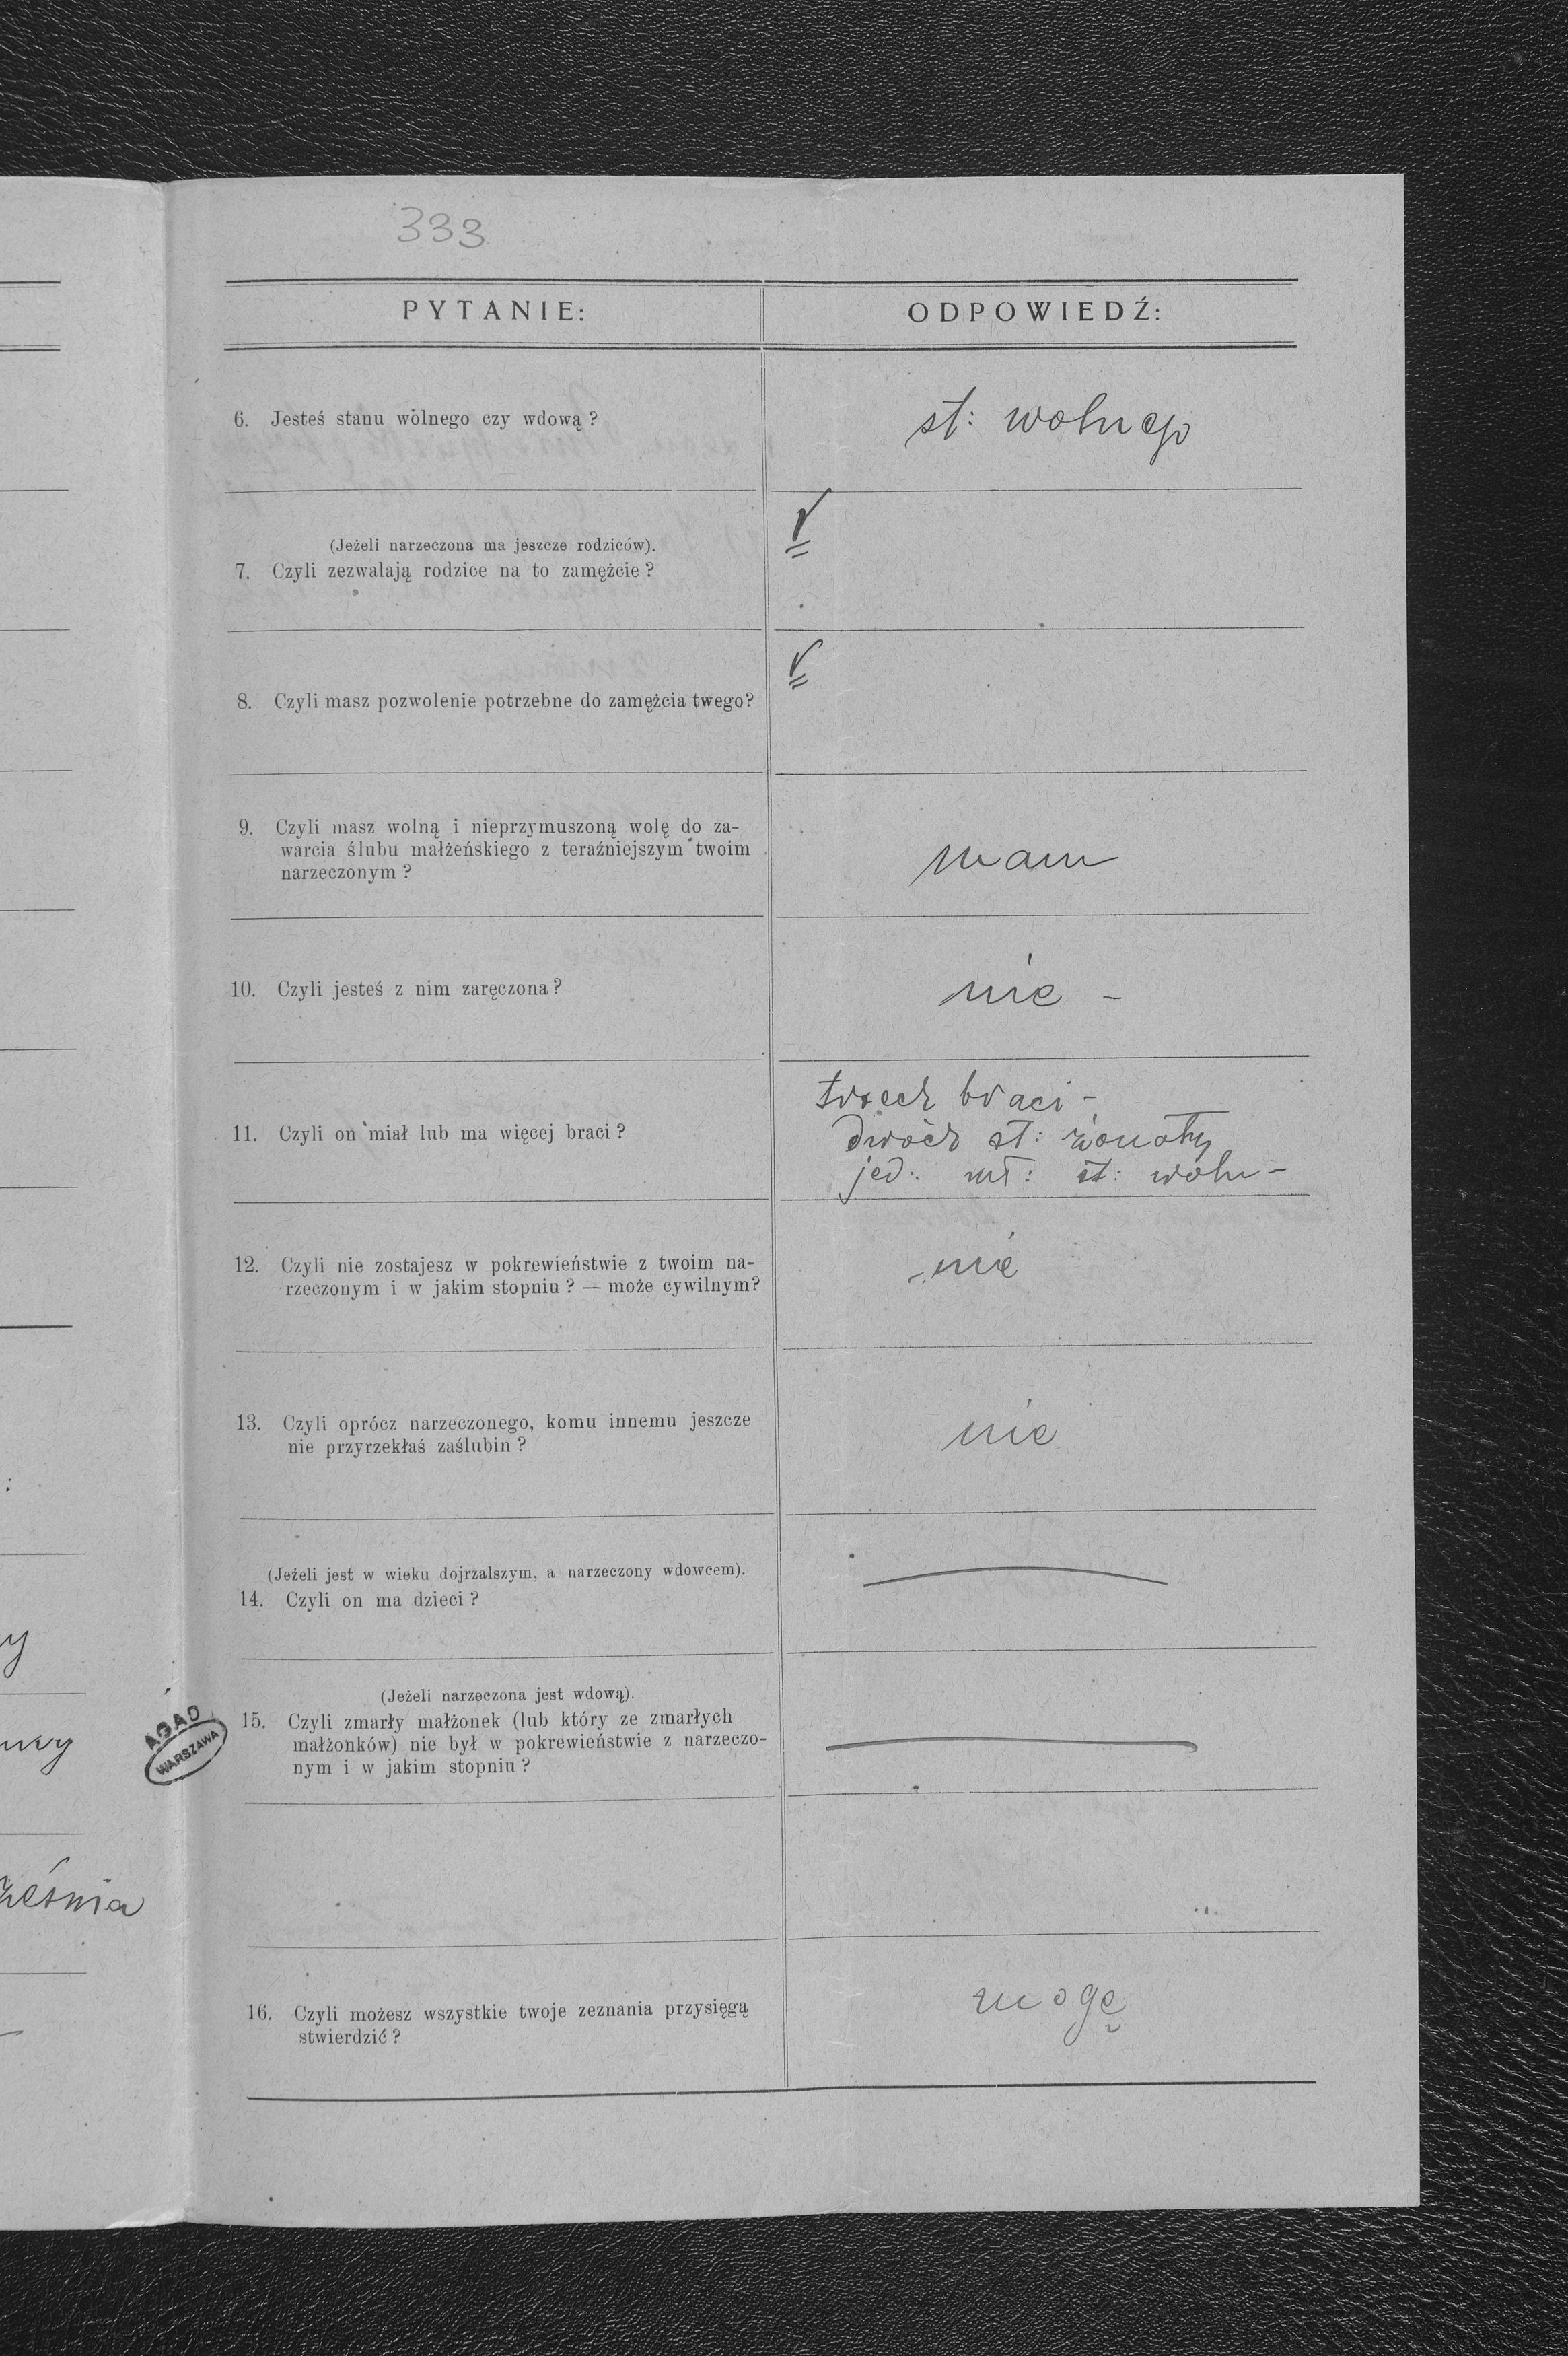 333
PYTANIE: ODPOWIEDŹ:
6. Jesteś stanu wolnego czy wdową? st: wolnego
(Jeżeli narzeczona ma jeszcze rodziców).
7. Czyli zezwalają rodzice na to zamężcie?
8. Czyli masz pozwolenie potrzebne do zamężcia twego?
9. Czyli masz wolną i nieprzymuszoną wolę do za-
warcia ślubu małżeńskiego z teraźniejszym twoim
narzeczonym?
mam
10. Czyli jesteś z nim zaręczona? nie –
trzech braci –
11. Czyli on miał lub ma więcej braci? dwóch st: żonaty
jed: mł: st: woln –
12. Czyli nie zostajesz w pokrewieństwie z twoim na-
rzeczonym i w jakim stopniu? — może cywilnym?
nie
13. Czyli oprócz narzeczonego, komu innemu jeszcze
nie przyrzekłaś zaślubin?
nie
(Jeżeli jest w wieku dojrzalszym, a narzeczony wdowcem).
14. Czyli on ma dzieci?
(Jeżeli narzeczona jest wdową).
15. Czyli zmarły małżonek (lub który ze zmarłych
małżonków) nie był w pokrewieństwie z narzeczo-
nym i w jakim stopniu?
AGAD
WARSZAWA
16. Czyli możesz wszystkie twoje zeznania przysięgą
stwierdzić?
mogę